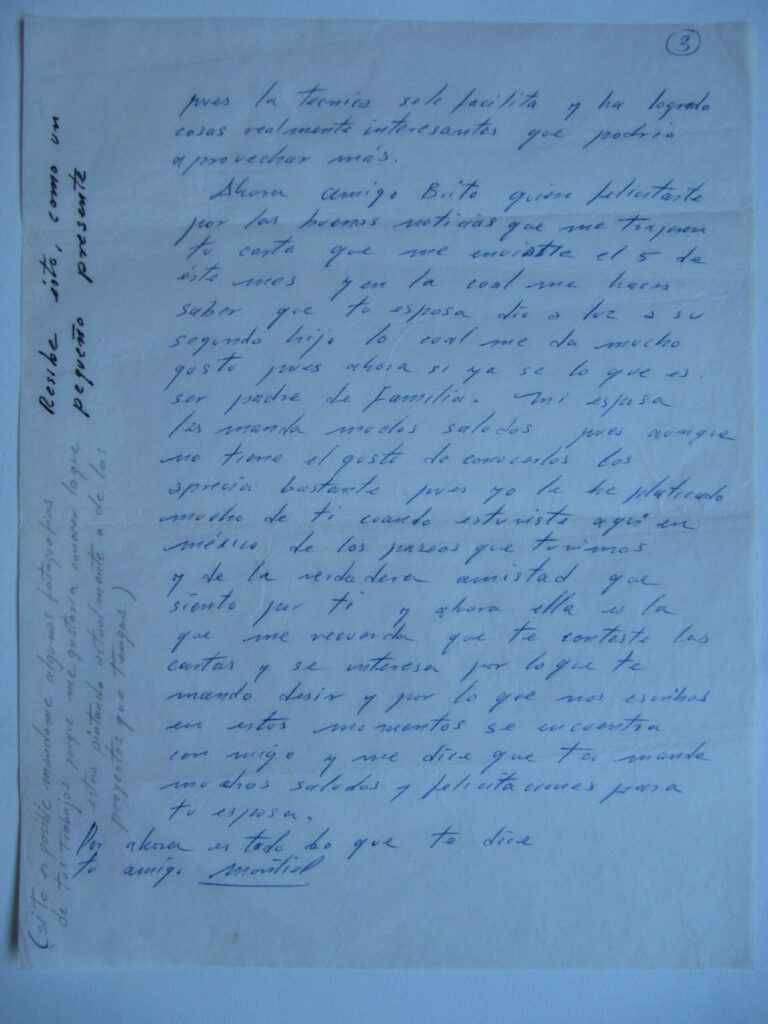 3
pues la tecnica se le facilita y ha logrado
cosas realmente interesantes que podria
aprovechar más.
Ahora amigo Brito quiero felicitarte
por las buenas noticias que me trajeron
tu carta que me enviaste el 5 de
éste mes y en la cual me haces
saber que tu esposa dio a luz a su
segundo hijo lo cual me da mucho
gusto pues ahora si ya se lo que es
ser padre de Familia. Mi esposa
les manda muchos saludos pues aunque
no tiene el gusto de conocerlos los
aprecia bastante pues yo le he platicado
mucho de ti cuando estuviste aqui en
méxico de los paseos que tuvimos
y de la verdadera amistad que
siento por ti y ahora ella es la
que me recuerda que te conteste las
cartas y se interesa por lo que te
mando desir y por lo que nos escribes
en estos momentos se encuentra
con migo y me dice que te manda
muchos saludos y felicitaciones para
tu esposa.
Por ahora es todo lo que te dice
tu amigo Montiel
Resibe ésto, como un
pequeño presente
(si te es posible mandame algunas fotografias
de tus trabajos porque me gustaria conocer lo que
estas pintando actualmente o de los
proyectos que tengas.)